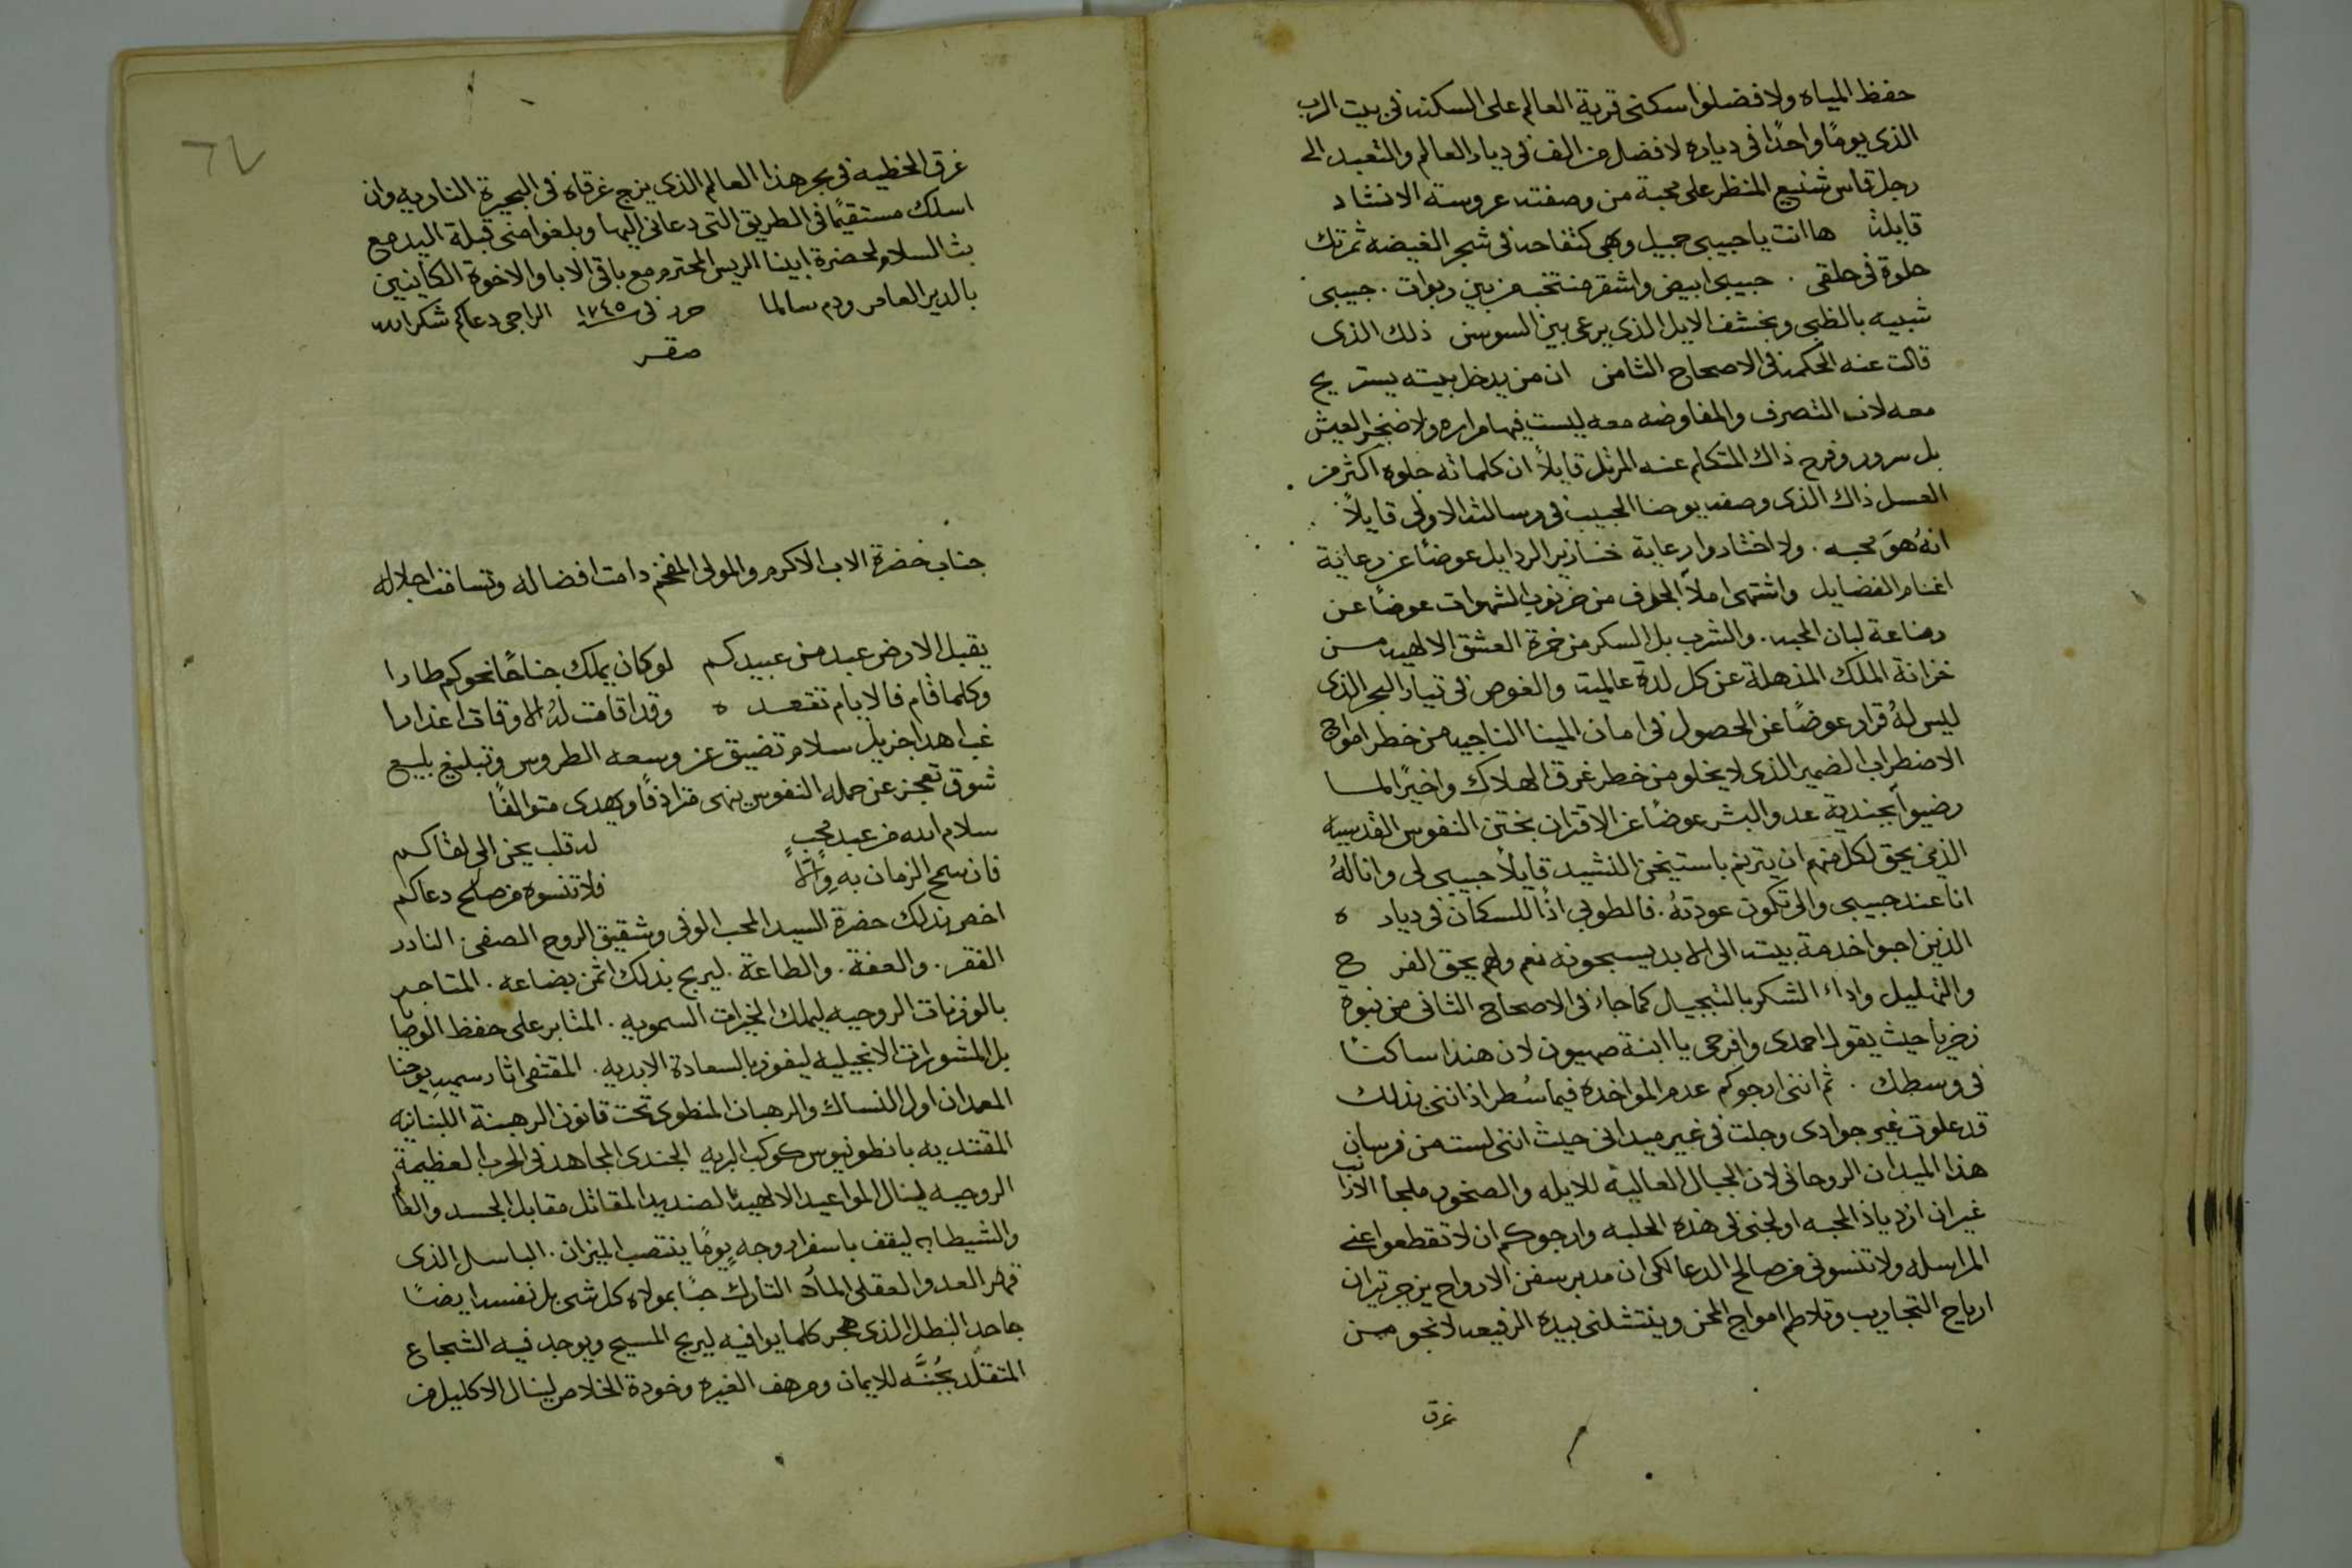 حفظ المياه ولا فضلوا سكنى قرية العالم على السكنه في بيت الرب
الذي يومًا واحدًا في دياره لافضل من الف في ديار العالم والتعبد الى
رجل قاس شنيع المنظر على محبة من وصفته عروسة الانشاد
قايلة ها انت يا حبيبي جميل وبهي كتفاحه في شجر الغيضه ثمرتك
حلوة في حلقي . حبيبي ابيض واشقر منتخب من بين ربوات . حبيبي
شبيه بالظبي وبخشف الايل الذي يرعى بين السوسن ذلك الذي
قالت عنه الحكمه في الاصحاح الثامن ان من يدخل بيته يستريح
معه لان التصرف والمفاوضه معه ليست فيها مراره ولا ضجر العيش
بل سرور وفرح ذاك المتكلم عنه المرتل قايلاً ان كلماته حلوه اكثر من
العسل ذاك الذي وصفه يوحنا الحبيب في رسالته الاولى قايلاً
انهُ هوَ محبه . ولا اختاروا رعاية خنازير الردايل عوضًا عن رعاية
اغنام الفضايل واشتهى املأ الجوف من خرنوب الشهوات عوضًا عن
رضاعة لبان المحبه . والشرب بل السكر من خمرة العشق الالهيه من
خزانة الملك المذهلة عن كل لذة عالمية والغوص في تيار البحر الذي
ليس لهُ قرار عوضًا عن الحصول في امان المينا الناجيه من خطر امواج
الاضطراب الضمير الذي لا يخلو من خطر غرق الهلاك واخيرًا لما
رضيوا بجندية عدو البشر عوضًا عن الاقتران بختن النفوس القدسيه
الذي يحق لكل منهم ان يترنم باستيخن النشيد قايلاً حبيبي لي وانا لهُ
انا عند حبيبي والي تكون عودتهُ . فالطوبى اذًا للسكان في ديار ه
الذين احبوا خدمة بيته الى الابد يسبحونه نعم ولهم يحق الفرح
والتهليل واداء الشكر بالتبجيل كما جاء في الاصحاح الثاني من نبوة
زخريا حيث يقول احمدي وافرحي يا ابنة صهيون لان هنذا ساكنًا
في وسطك . ثم انني ارجوكم عدم المواخذه فيما سُطر اذ انني بذلك
قد علوت غير جوادي وجلت في غير ميداني حيث انني لست من فرسان
هذا الميدان الروحاني لان الجبال العالية للايله والصخور ملجا الارانب
غير ان ازدياد المحبه اولجني في هذه الحلبه وارجوكم ان لا تقطعوا عني
المراسله ولا تنسوني من صالح الدعا لكي ان مدبر سفن الارواح يزجر تيران
ارياح التجاريب وتلاطم امواج المحن وينتشلني بيده الرفيعه لانجو من
غرق
٦٤
غرق الخطيه في بحر هذا العالم الذي يزج غرقاه في البحيرة الناريه وان
اسلك مستقيمًا في الطريق التي دعاني اليها وبلغوا مني قبلة اليد مع
بث السلام لحضرة ابينا الريس المحترم مع باقي الابا والاخوة الكاينين
بالدير العامر ودم سالما حرر في سنة ١٧٤٥ الراجي دعاكم شكرالله
صقر
جناب حضرة الاب الاكرم والمولى المفخم دامت افضاله وتسامت اجلاله
يقبل الارض عبد من عبيدكم لو كان يملك جناحًا نحوكم طارا
وكلما قام فالايام تقعد ه وقد اقامت لهُ الاوقات اعذارا
غب اهدا جزيل سلام تضيق عن وسعه الطروس وتبليغ بليع
شوق تعجز عن حمله النفوس ينهى مترادفًا ويهدى متوالفًا
سلام الله من عبد محبٍ له قلب يحن الى لقاكم
فان سمح الزمان به والّا فلا تنسوه من صالح دعاكم
اخص بذلك حضرة السيد المحب الوفي وشقيق الروح الصفي . النادر
الفقر . والعفة . والطاعة . ليربح بذلك اثمن بضاعه . المتاجر
بالوزنات الروحيه ليملك الخيرات السمويه . المثابر على حفظ الوصايا
بل المشورات الانجيليه ليفوز بالسعادة الابديه . المقتفي اثار سميه يوحنا
المعمدان اول النساك والرهبان المنطوى تحت قانون الرهبنة اللبنانيه
المقتدى به بانطونيوس كوكب البريه الجندي المجاهد في الحرب العظيمة
الروحيه لينال المواعيد الالهية الصنديد المقاتل مقابل الجسد والعالم
والشيطان ليقف باسفار وجه يومًا ينتصب الميزان . الباسل الذي
قهر العدو العقلي المارد التارك حبًا بمولاه كل شي بل نفسه ايضًا
جاحد البطل الذي هجر كلما يوافيه ليربح المسيح ويوجد فيه الشجاع
المتقلّد بجُنَّه للايمان ومرهف الغيره وخودة الخلاص لينال الاكليل من